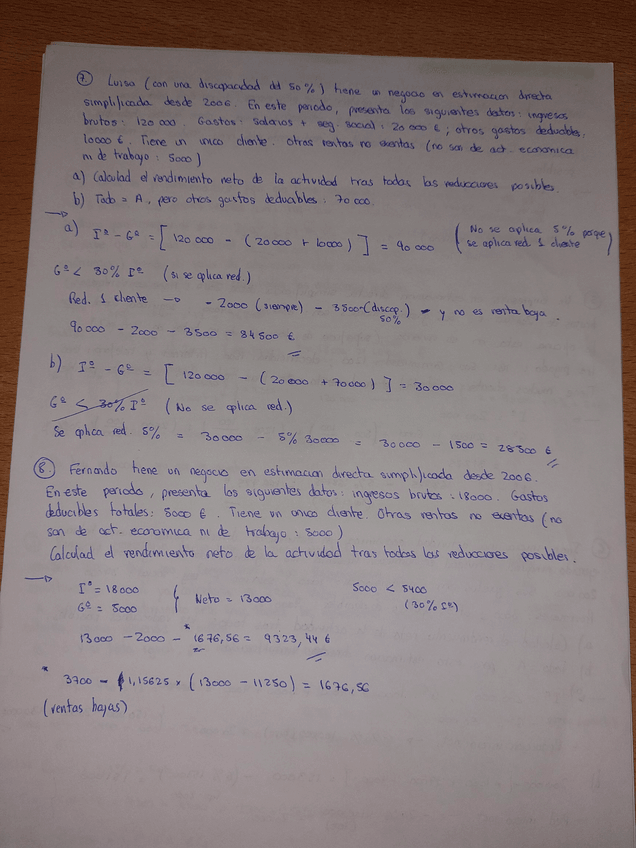 7. Luisa (con una discapacidad del 50%) tiene un negocio en estimacion directa
simplificada desde 2006. En este periodo, presenta los siguientes datos: ingresos
brutos: 120 000. Gastos: salarios + seg. social: 20 000 €; otros gastos deducibles:
10000 €. Tiene un unico cliente. Otras rentas no exentas (no son de act. economica
ni de trabajo: 5000)
a) Calculad el rendimiento neto de la actividad tras todas las reducciones posibles.
b) Todo = A, pero otros gastos deducibles: 70 000.
→
a) Iº - Gº = [120 000 - (20000 + 10000)] = 90 000 (No se aplica 5% porque
se aplica red. 1 cliente)
Gº < 30% Iº (si se aplica red.)
Red. 1 cliente → - 2000 (siempre) - 3500 (discap. 50%) - y no es renta baja.
90000 - 2000 - 3500 = 84500 €
b) Iº - Gº = [120 000 - (20000 + 70000)] = 30000
Gº < 30% Iº (No se aplica red.)
Se aplica red. 5% = 30000 - 5% 30000 = 30000 - 1500 = 28500 €
8. Fernando tiene un negocio en estimacion directa simplificada desde 2006.
En este periodo, presenta los siguientes datos: ingresos brutos: 18000. Gastos
deducibles totales: 5000 €. Tiene un unico cliente. Otras rentas no exentas (no
son de act. economica ni de trabajo: 5000)
Calculad el rendimiento neto de la actividad tras todas las reducciones posibles.
→
Iº = 18000
Gº = 5000
Neto = 13000
5000 < 5400
(30% Iº)
13000 - 2000 - *1676,56 = 9323,44 €
* 3700 - 1,15625 x (13000 - 11250) = 1676,56
(rentas bajas)